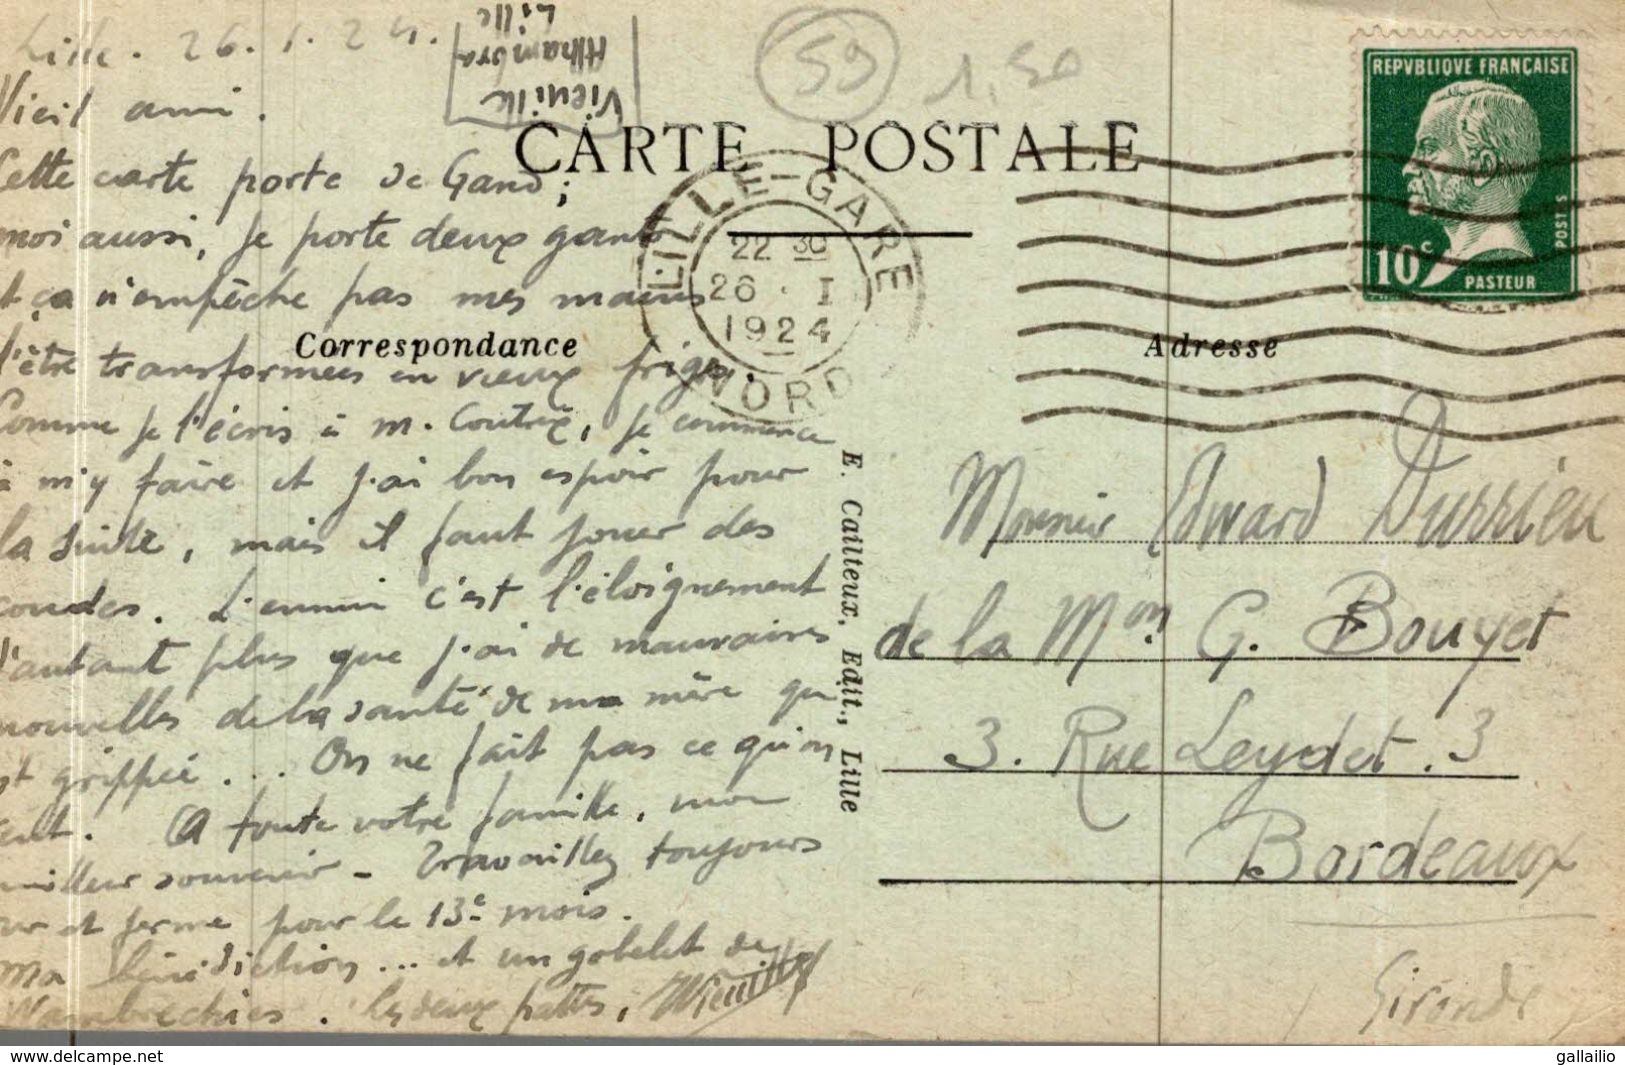 Lille. 26.1.24.
Vieuille
Alhambra
Lille
59
1,50
REPVBLIQVE FRANÇAISE
10c
POSTES
PASTEUR
CARTE POSTALE
LILLE-GARE
22 30
26 · I
1924
NORD
Correspondance
Adresse
Vieil ami.
Cette carte porte de Gand;
moi aussi, je porte deux gants
et ça n'empêche pas mes mains
d'être transformées en vieux frigos.
Comme je l'écris à M. Coutrix, je commence
à m'y faire et j'ai bon espoir pour
la suite, mais il faut jouer des
coudes. L'ennui c'est l'éloignement
d'autant plus que j'ai de mauvaises
nouvelles de la santé de ma mère qui
est grippée... On ne fait pas ce qu'on
veut. A toute votre famille, mon
meilleur souvenir - Travaillez toujours
dur et ferme pour le 13e mois.
Ma bénédiction... et un gobelet de
Wambrechies. Les deux pattes, Vieuille
E. Cailteux, Edit., Lille
Monsieur Edward Durrieu
de la Mon G. Bouyet
3. Rue Leydet. 3
Bordeaux
Gironde
gallailio